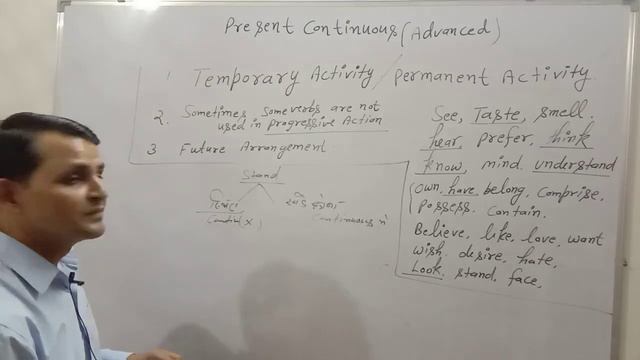 Present Continuous (Advanced)
1 Temporary Activity / Permanent Activity.
2. Sometimes some verbs are not
used in progressive Action
3 Future Arrangement
Stand
(X)
Continuous में
See, Taste, smell.
hear, prefer, think
know, mind, understand
own, have, belong, Comprise,
Possess. Contain.
Believe, like, love, want
wish. desire, hate,
Look. stand. face,